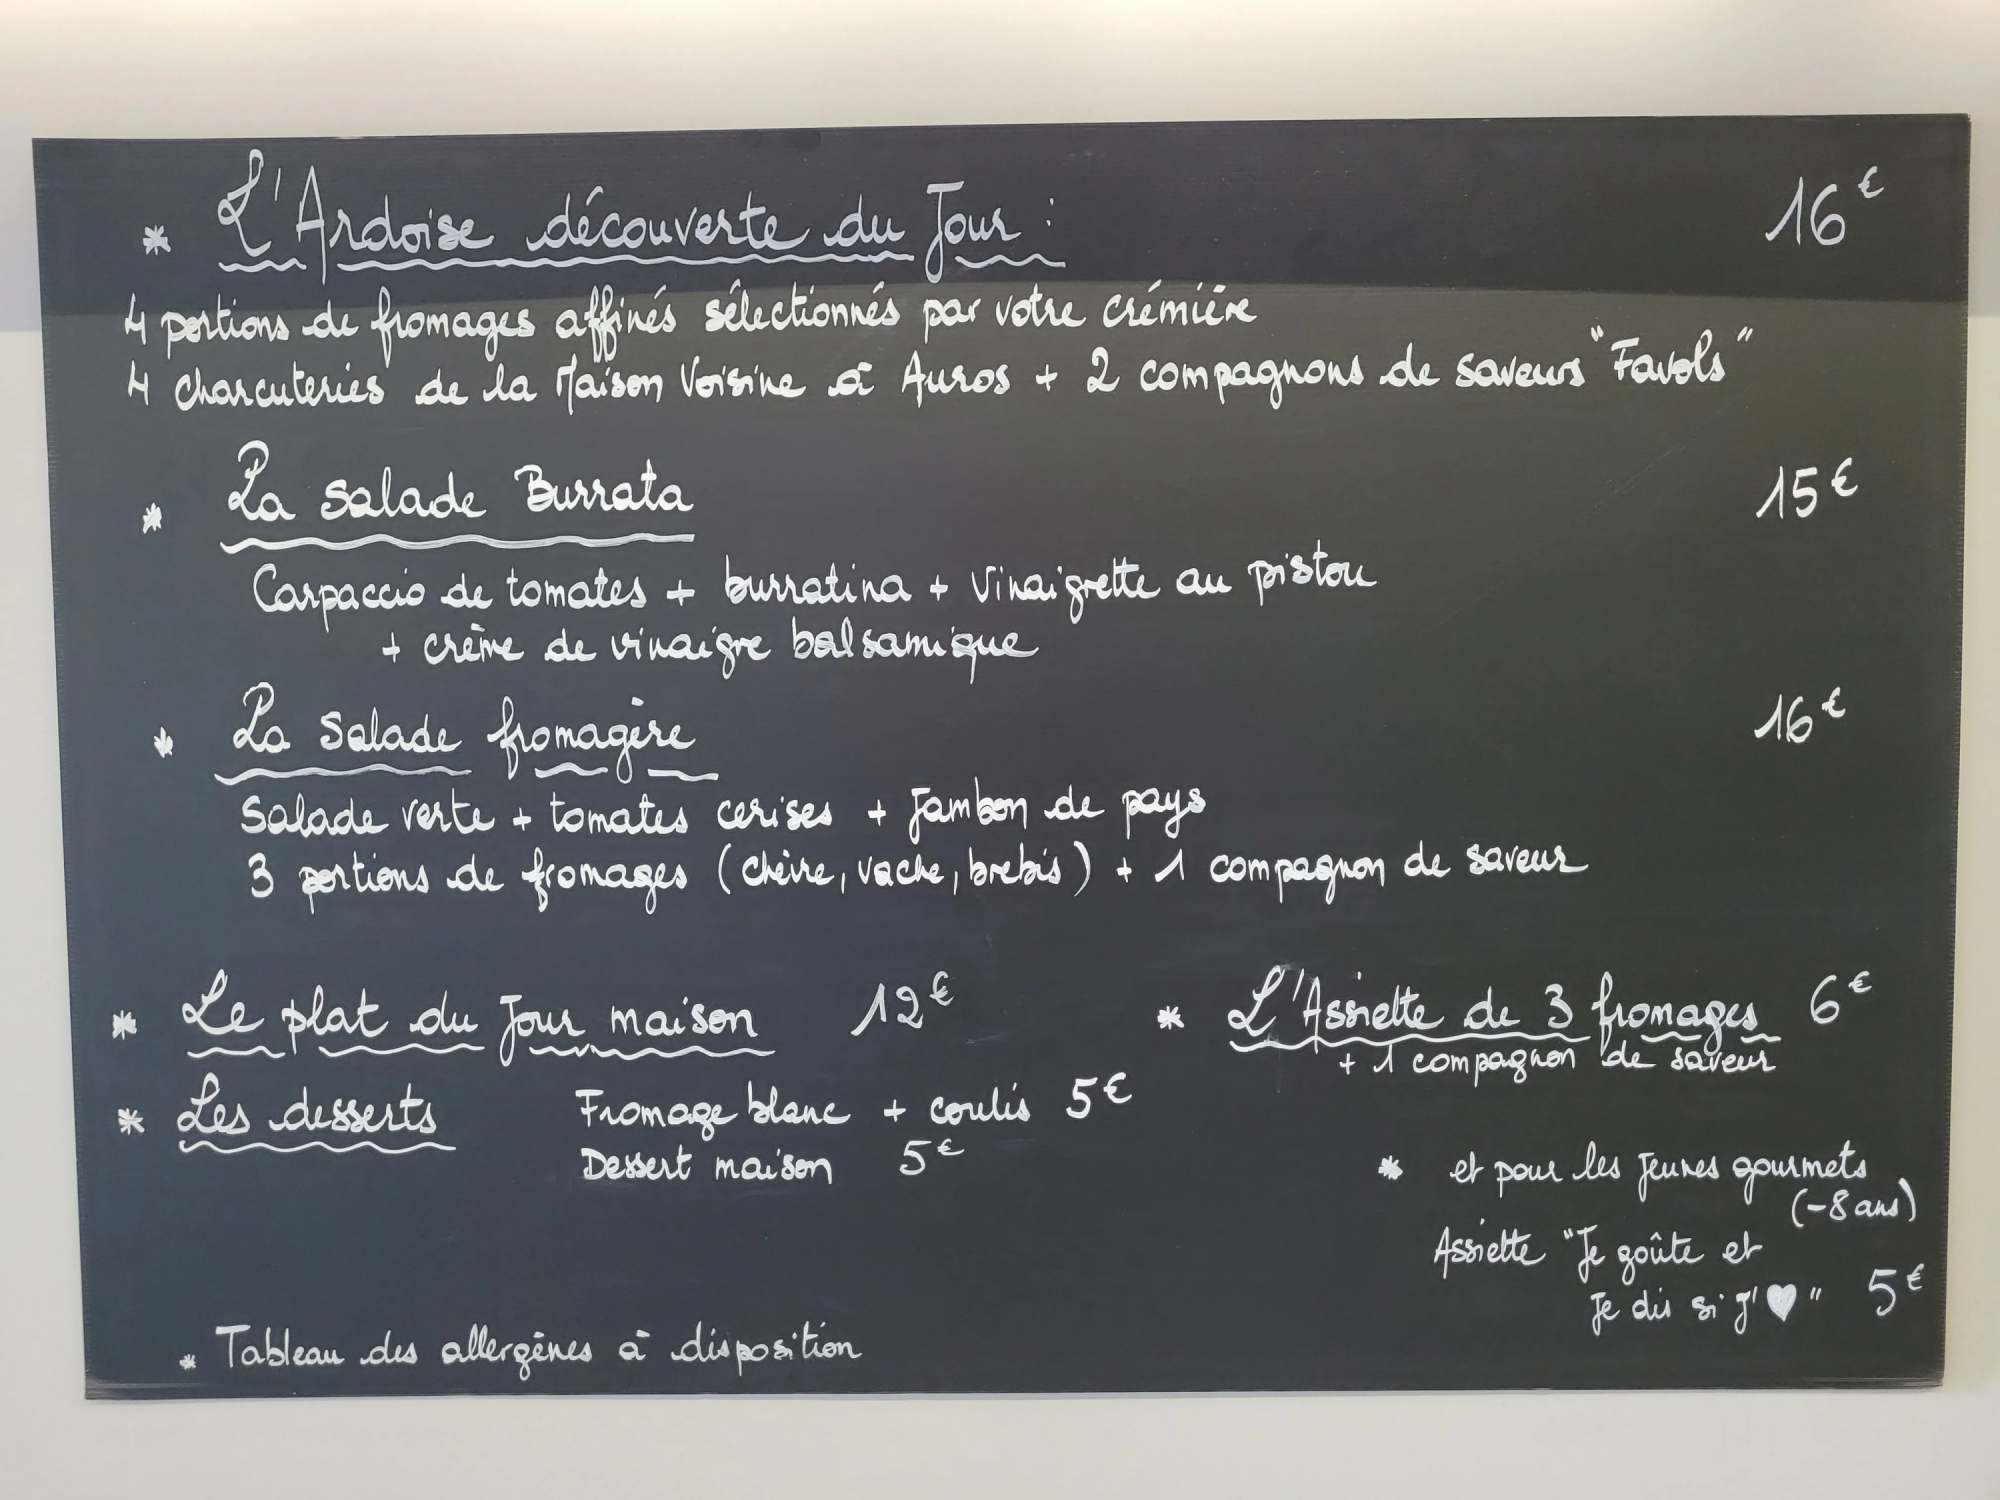 * L'Ardoise découverte du Jour : 16€
4 portions de fromages affinés sélectionnés par votre crémière
4 charcuteries de la Maison Voisine à Auros + 2 compagnons de saveurs "Favols"
* La salade Burrata 15€
Carpaccio de tomates + burratina + vinaigrette au pistou
+ crème de vinaigre balsamique
* La Salade fromagère 16€
Salade verte + tomates cerises + Jambon de pays
3 portions de fromages (chèvre, vache, brebis) + 1 compagnon de saveur
* Le plat du Jour maison 12€
* L'Assiette de 3 fromages 6€
+ 1 compagnon de saveur
* Les desserts Fromage blanc + coulis 5€
Dessert maison 5€
* et pour les Jeunes gourmets
(-8 ans)
Assiette "Je goûte et
Je dis si J'♥" 5€
* Tableau des allergènes à disposition